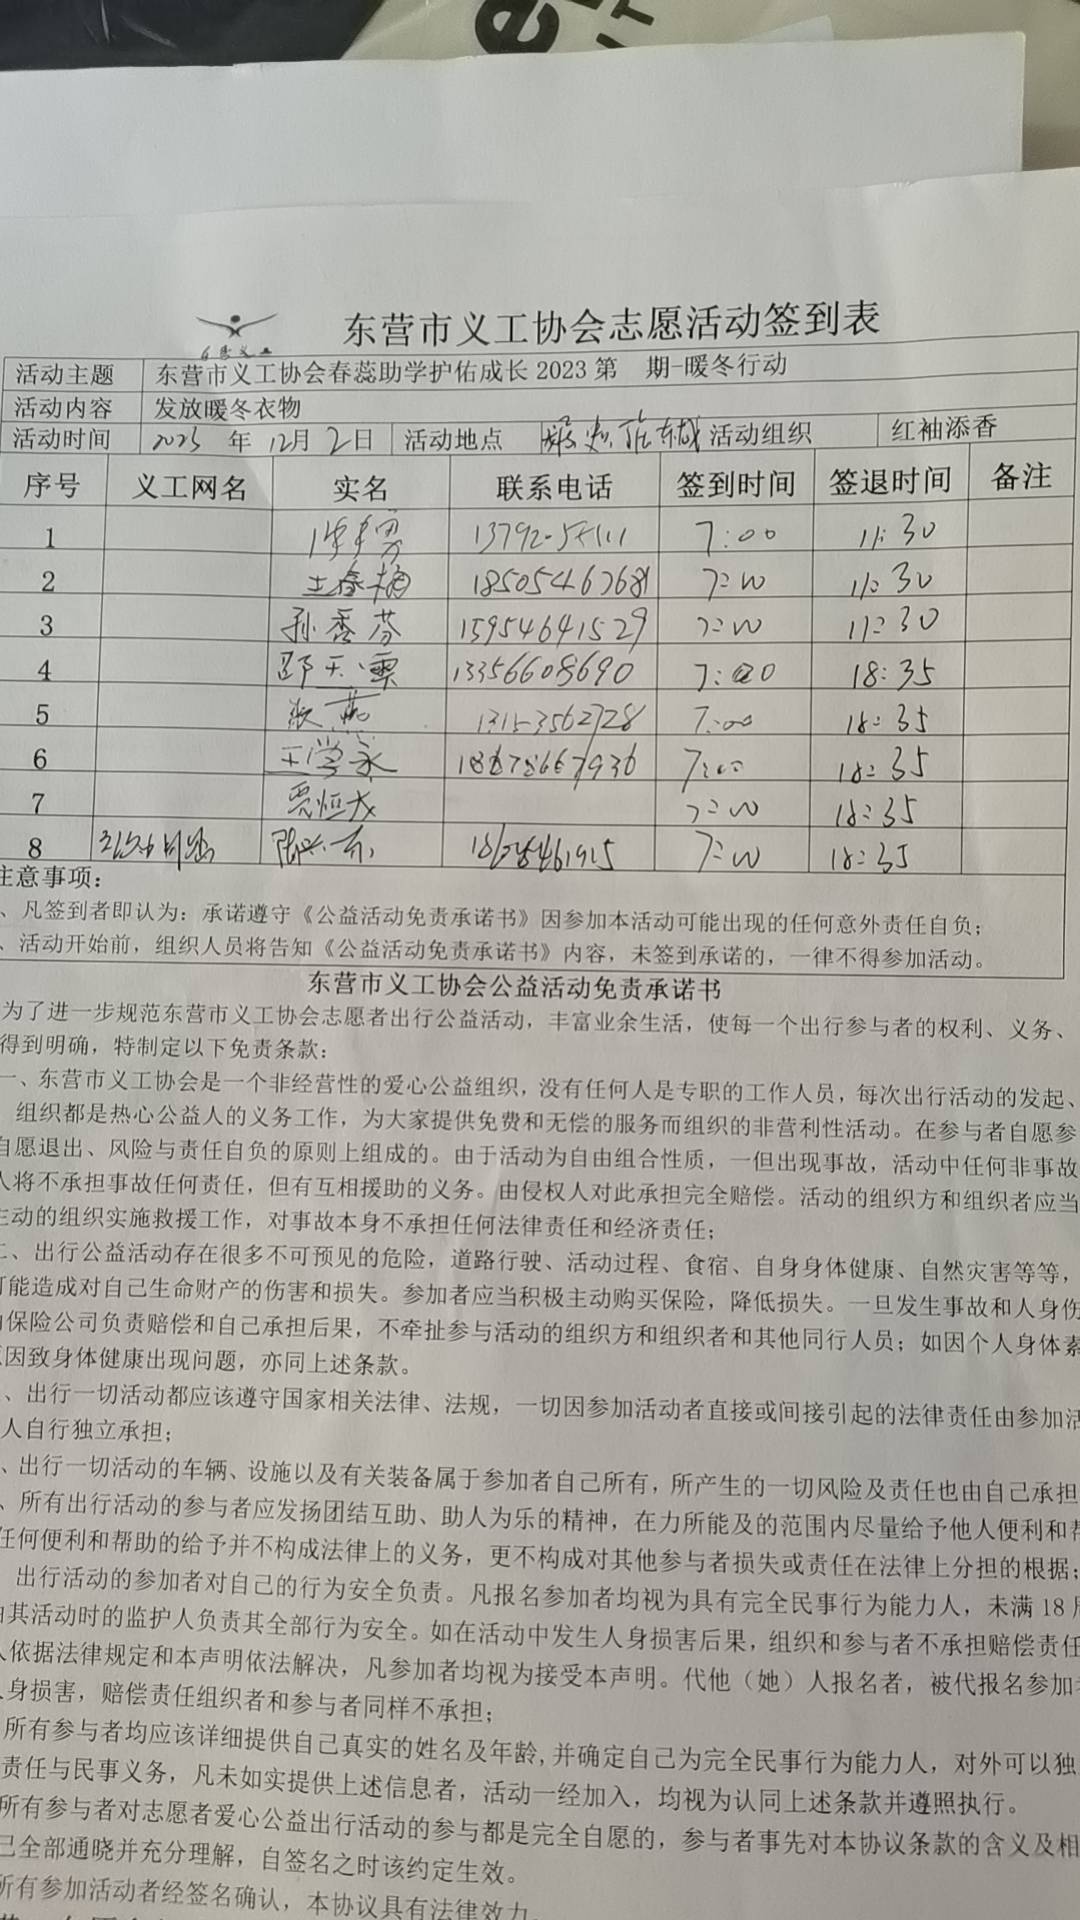 东营市义工协会志愿活动签到表
活动主题 东营市义工协会春蕊助学护佑成长 2023 第 期-暖冬行动
活动内容 发放暖冬衣物
活动时间 2023 年 12月 2日 活动地点 东城 活动组织 红袖添香
序号 义工网名 实名 联系电话 签到时间 签退时间 备注
1 7:00 11:30
2 王春梅 18505467681 7:00 11:30
3 孙香芬 15954641529 7:00 11:30
4 邵天雪 13356608690 7:00 18:35
5 张燕 13153562728 7:00 18:35
6 王学永 18678667936 7:00 18:35
7 贾恒戈 7:00 18:35
8 7:00 18:35
注意事项：
、凡签到者即认为：承诺遵守《公益活动免责承诺书》因参加本活动可能出现的任何意外责任自负；
、活动开始前，组织人员将告知《公益活动免责承诺书》内容，未签到承诺的，一律不得参加活动。
东营市义工协会公益活动免责承诺书
为了进一步规范东营市义工协会志愿者出行公益活动，丰富业余生活，使每一个出行参与者的权利、义务、
得到明确，特制定以下免责条款：
一、东营市义工协会是一个非经营性的爱心公益组织，没有任何人是专职的工作人员，每次出行活动的发起、
组织都是热心公益人的义务工作，为大家提供免费和无偿的服务而组织的非营利性活动。在参与者自愿参
自愿退出、风险与责任自负的原则上组成的。由于活动为自由组合性质，一但出现事故，活动中任何非事故
人将不承担事故任何责任，但有互相援助的义务。由侵权人对此承担完全赔偿。活动的组织方和组织者应当
主动的组织实施救援工作，对事故本身不承担任何法律责任和经济责任；
二、出行公益活动存在很多不可预见的危险，道路行驶、活动过程、食宿、自身身体健康、自然灾害等等，
可能造成对自己生命财产的伤害和损失。参加者应当积极主动购买保险，降低损失。一旦发生事故和人身伤
由保险公司负责赔偿和自己承担后果，不牵扯参与活动的组织方和组织者和其他同行人员；如因个人身体素
原因致身体健康出现问题，亦同上述条款。
、出行一切活动都应该遵守国家相关法律、法规，一切因参加活动者直接或间接引起的法律责任由参加活
人自行独立承担；
、出行一切活动的车辆、设施以及有关装备属于参加者自己所有，所产生的一切风险及责任也由自己承担
、所有出行活动的参与者应发扬团结互助、助人为乐的精神，在力所能及的范围内尽量给予他人便利和帮
任何便利和帮助的给予并不构成法律上的义务，更不构成对其他参与者损失或责任在法律上分担的根据；
出行活动的参加者对自己的行为安全负责。凡报名参加者均视为具有完全民事行为能力人，未满 18 周
由其活动时的监护人负责其全部行为安全。如在活动中发生人身损害后果，组织和参与者不承担赔偿责任
人依据法律规定和本声明依法解决，凡参加者均视为接受本声明。代他（她）人报名者，被代报名参加者
人身损害，赔偿责任组织者和参与者同样不承担；
所有参与者均应该详细提供自己真实的姓名及年龄,并确定自己为完全民事行为能力人，对外可以独
责任与民事义务，凡未如实提供上述信息者，活动一经加入，均视为认同上述条款并遵照执行。
所有参与者对志愿者爱心公益出行活动的参与都是完全自愿的，参与者事先对本协议条款的含义及相
已全部通晓并充分理解，自签名之时该约定生效。
所有参加活动者经签名确认，本协议具有法律效力。